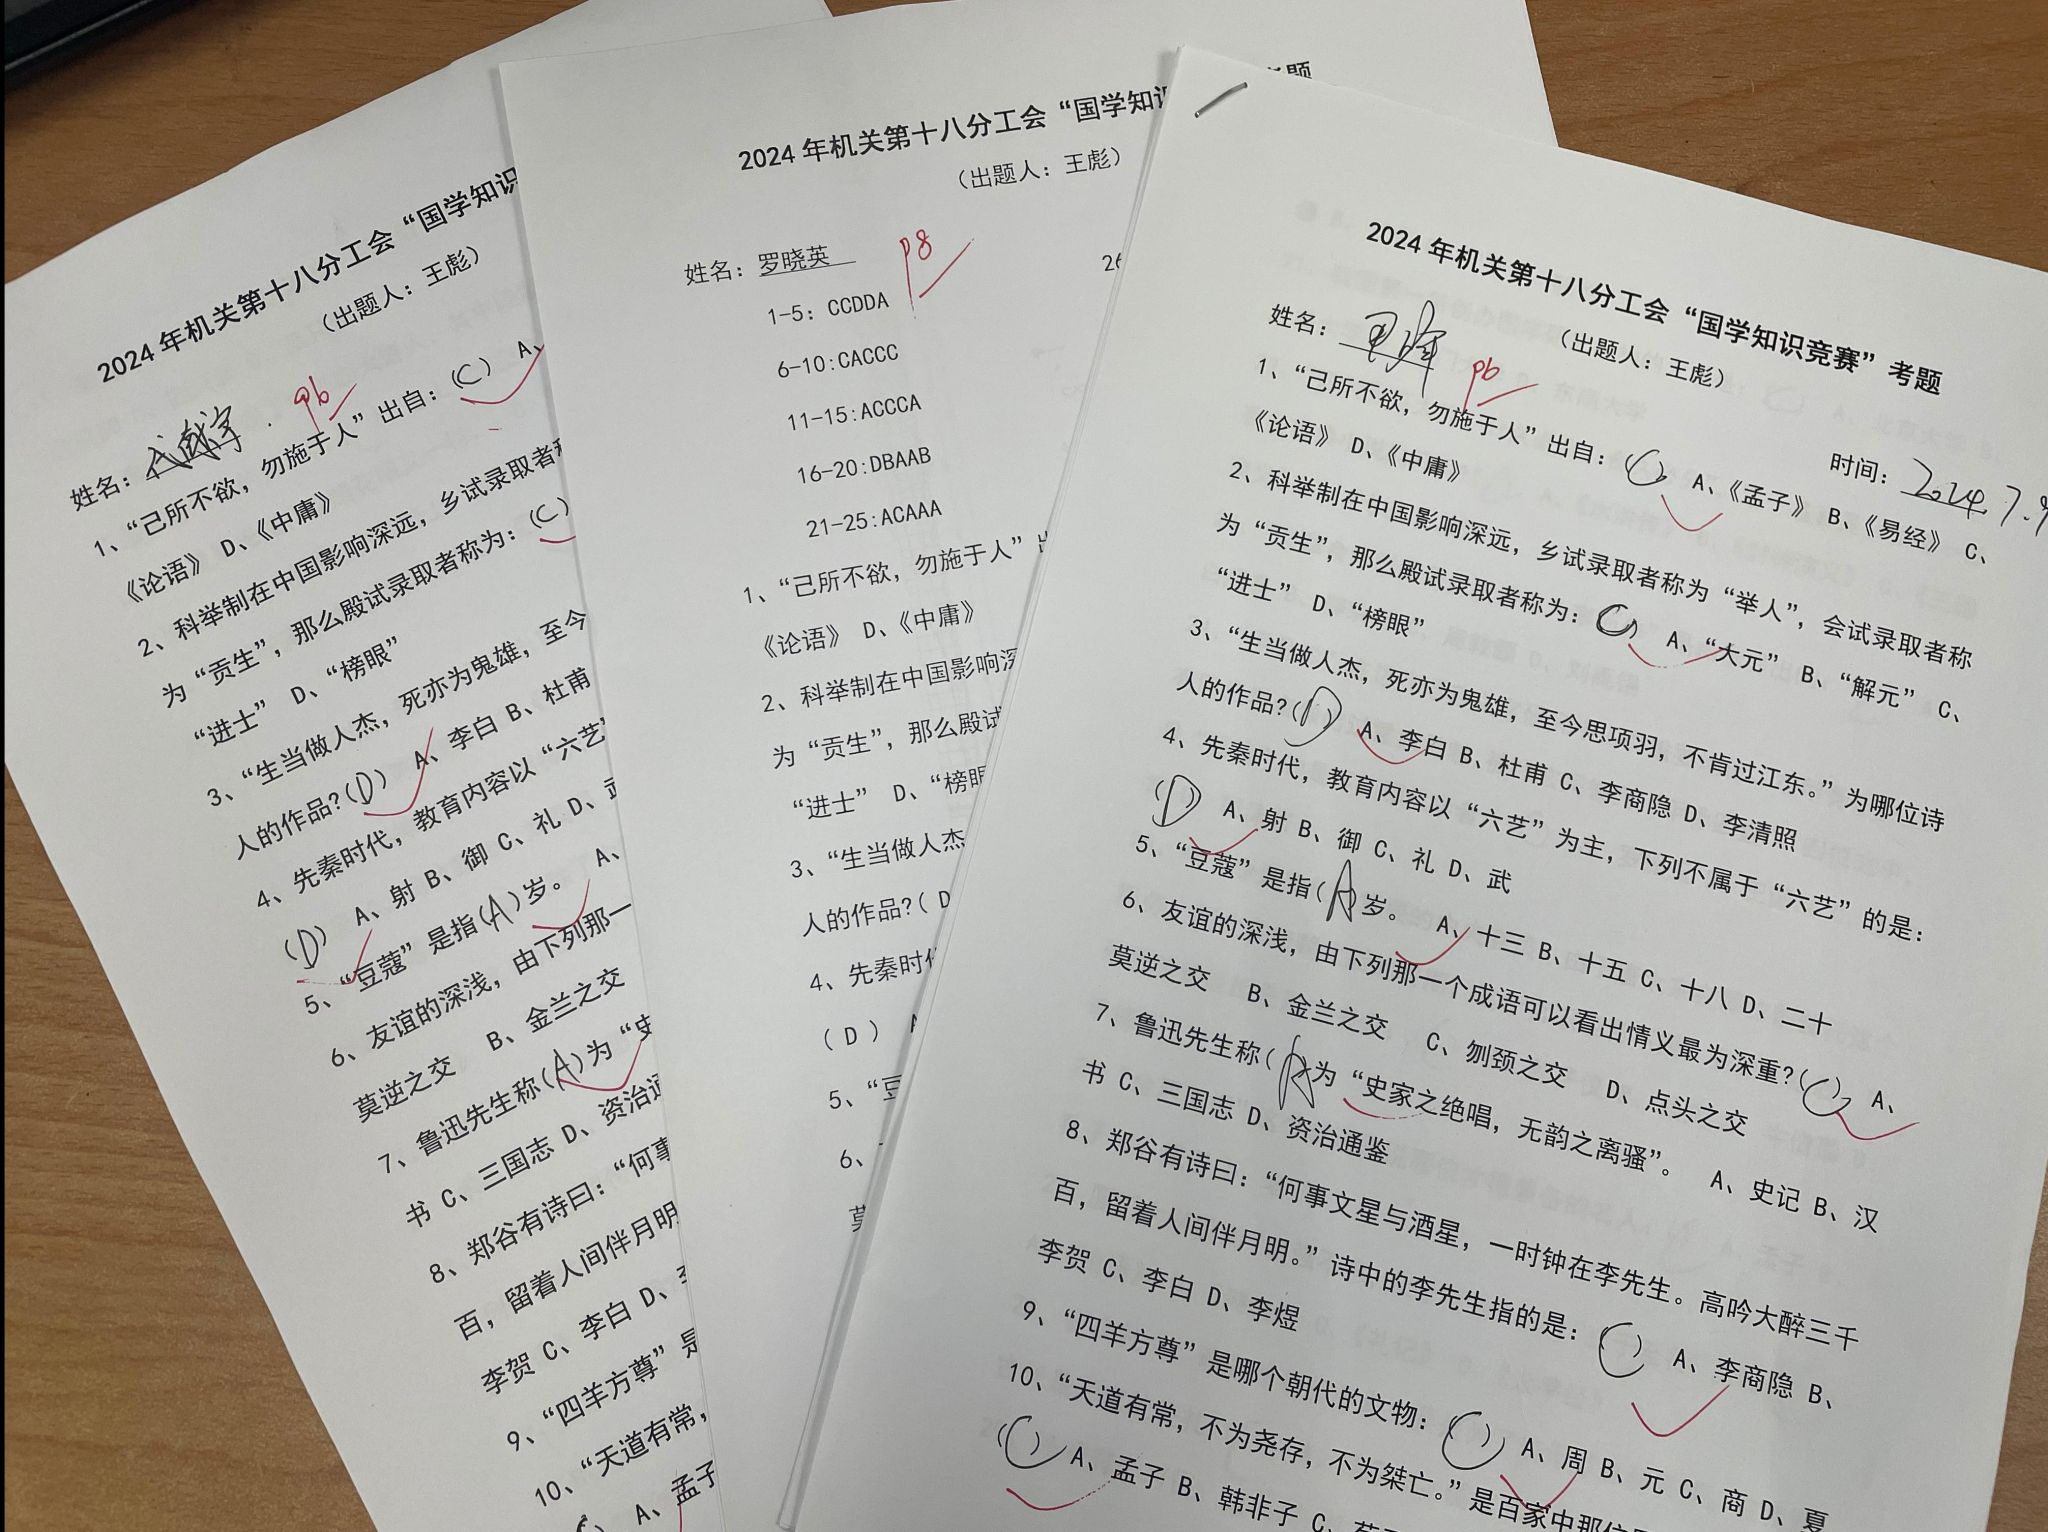 2024年机关第十八分工会“国学知识
（出题人：王彪）
姓名：
1、“己所不欲，勿施于人”出自：（C） A、
《论语》 D、《中庸》
2、科举制在中国影响深远，乡试录取者称
为“贡生”，那么殿试录取者称为：（C）
“进士” D、“榜眼”
3、“生当做人杰，死亦为鬼雄，至今
人的作品?（D） A、李白 B、杜甫
4、先秦时代，教育内容以“六艺”
（D） A、射 B、御 C、礼 D、武
5、“豆蔻”是指（A）岁。 A、
6、友谊的深浅，由下列那一
莫逆之交 B、金兰之交
7、鲁迅先生称（A）为“史
书 C、三国志 D、资治通
8、郑谷有诗曰：“何事
百，留着人间伴月明
李贺 C、李白 D、
9、“四羊方尊”是
10、“天道有常，
A、孟子
题
2024年机关第十八分工会“国学知识
（出题人：王彪）
姓名：罗晓英 98
26
1-5：CCDDA
6-10:CACCC
11-15:ACCCA
16-20:DBAAB
21-25:ACAAA
1、“己所不欲，勿施于人”出
《论语》 D、《中庸》
2、科举制在中国影响深
为“贡生”，那么殿试
“进士” D、“榜眼
3、“生当做人杰
人的作品?（ D
4、先秦时代
（ D ） A
5、“豆
6、
莫
2024年机关第十八分工会“国学知识竞赛”考题
（出题人：王彪）
姓名： 时间：2024.7.9
1、“己所不欲，勿施于人”出自：（C） A、《孟子》 B、《易经》 C、
《论语》 D、《中庸》
2、科举制在中国影响深远，乡试录取者称为“举人”，会试录取者称
为“贡生”，那么殿试录取者称为：（C） A、“大元” B、“解元” C、
“进士” D、“榜眼”
3、“生当做人杰，死亦为鬼雄，至今思项羽，不肯过江东。”为哪位诗
人的作品?（D） A、李白 B、杜甫 C、李商隐 D、李清照
4、先秦时代，教育内容以“六艺”为主，下列不属于“六艺”的是：
（D） A、射 B、御 C、礼 D、武
5、“豆蔻”是指（A）岁。 A、十三 B、十五 C、十八 D、二十
6、友谊的深浅，由下列那一个成语可以看出情义最为深重?（C） A、
莫逆之交 B、金兰之交 C、刎颈之交 D、点头之交
7、鲁迅先生称（A）为“史家之绝唱，无韵之离骚”。 A、史记 B、汉
书 C、三国志 D、资治通鉴
8、郑谷有诗曰：“何事文星与酒星，一时钟在李先生。高吟大醉三千
百，留着人间伴月明。”诗中的李先生指的是：（C） A、李商隐 B、
李贺 C、李白 D、李煜
9、“四羊方尊”是哪个朝代的文物：（C） A、周 B、元 C、商 D、夏
10、“天道有常，不为尧存，不为桀亡。”是百家中那位
（C） A、孟子 B、韩非子 C、